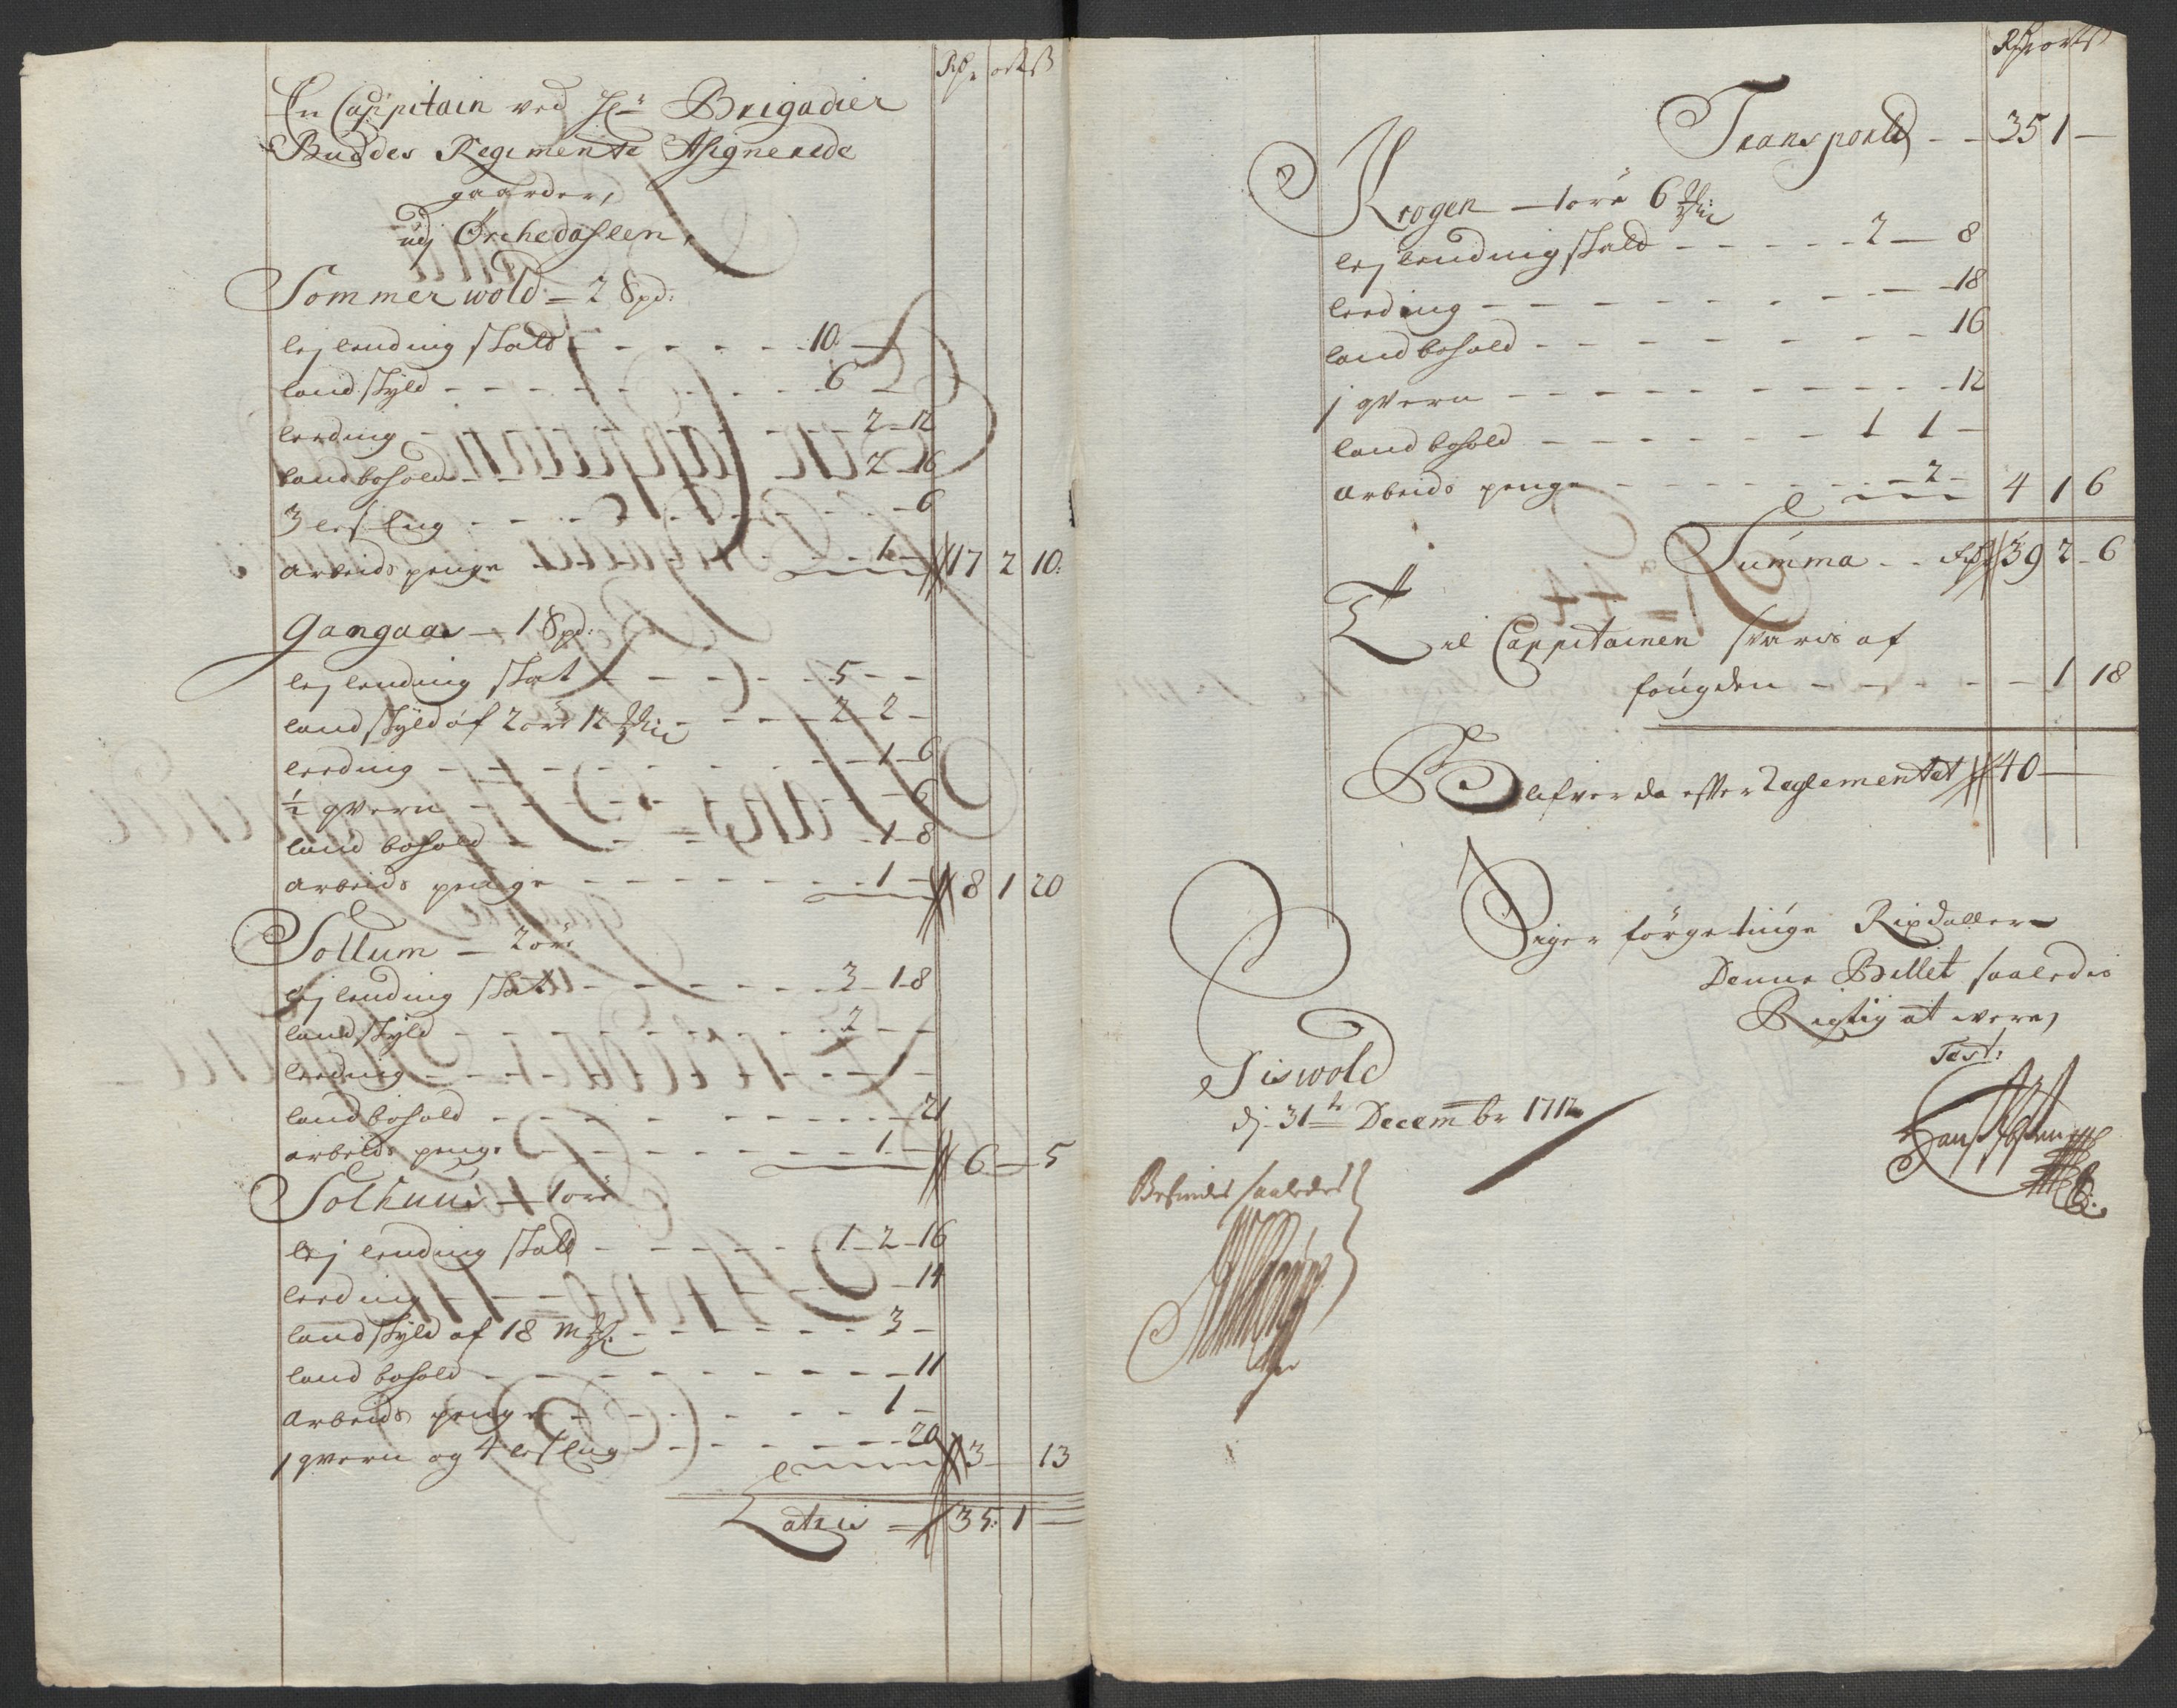 Rdr ort ß
En Cappitain ved Hr Brigadier
Buddes Regimente Assignerede
gaarder,
udj Orchedahlen,
Sommerwold — 2 Spd:
lejlending skatt - - - - - 10 —
landskyld - - - - - 6 —
leeding - - - - - 2 - 12
landbohold - - - - - 2 - 16
3 less Eng - - - - - 6
arbeids penge - - - 1 — 17 2 10:
Gangaas — 1 Spd:
lejlending skat - - - - - 5 - -
landskyld af 2 öre 12 - - - 2 - 2 -
leeding - - - - - 1 - 6
½ qvern - - - - - 6
land bohold - - - - - 1 - 8
arbeids penge - - - - - 1 - 8 1 20
Sollum — 2 öre
lejlending skat - - - - - 3 - 1 - 8
landskyld - - - - - 2 - -
leeding - - - - - - -
landbohold - - - - - 21
arbeids penge - - - - - 1 - 6 — 5
Solhuus — 1 öre
lej lending skatt - - - - - 1 - 2 - 16
leeding - - - - - 14
landskyld af 18 - - - - - 3 -
land bohold - - - - - 11
arbeids penge - - - - - 1 -
1 qvern og 4 less Eng - - - - - 20 3 — 13
Latris = 35: 1 —
Rdr ort ß
Transporte - - 35 1 —
Krogen — 1 öre 6
lejlending skatt - - - - - 2 — 8
leeding - - - - - 18
landbohold - - - - - 16
1 qvern - - - - - 12
land bohold - - - - - 1 1 -
arbeids penge - - - - - 2 - 4 1 6
Summa - - Rdr 39 2 - 6
Til Cappitainen svaris af
fougden - - - - - 1 18
Blifver da efter Reglementet 40 —
Siger förgetiuge Rixdaller
Denne Billet saaledis
Rigtig at were,
Test:
Siswold
dj 31te Decembr 1712
Befindes saaledes